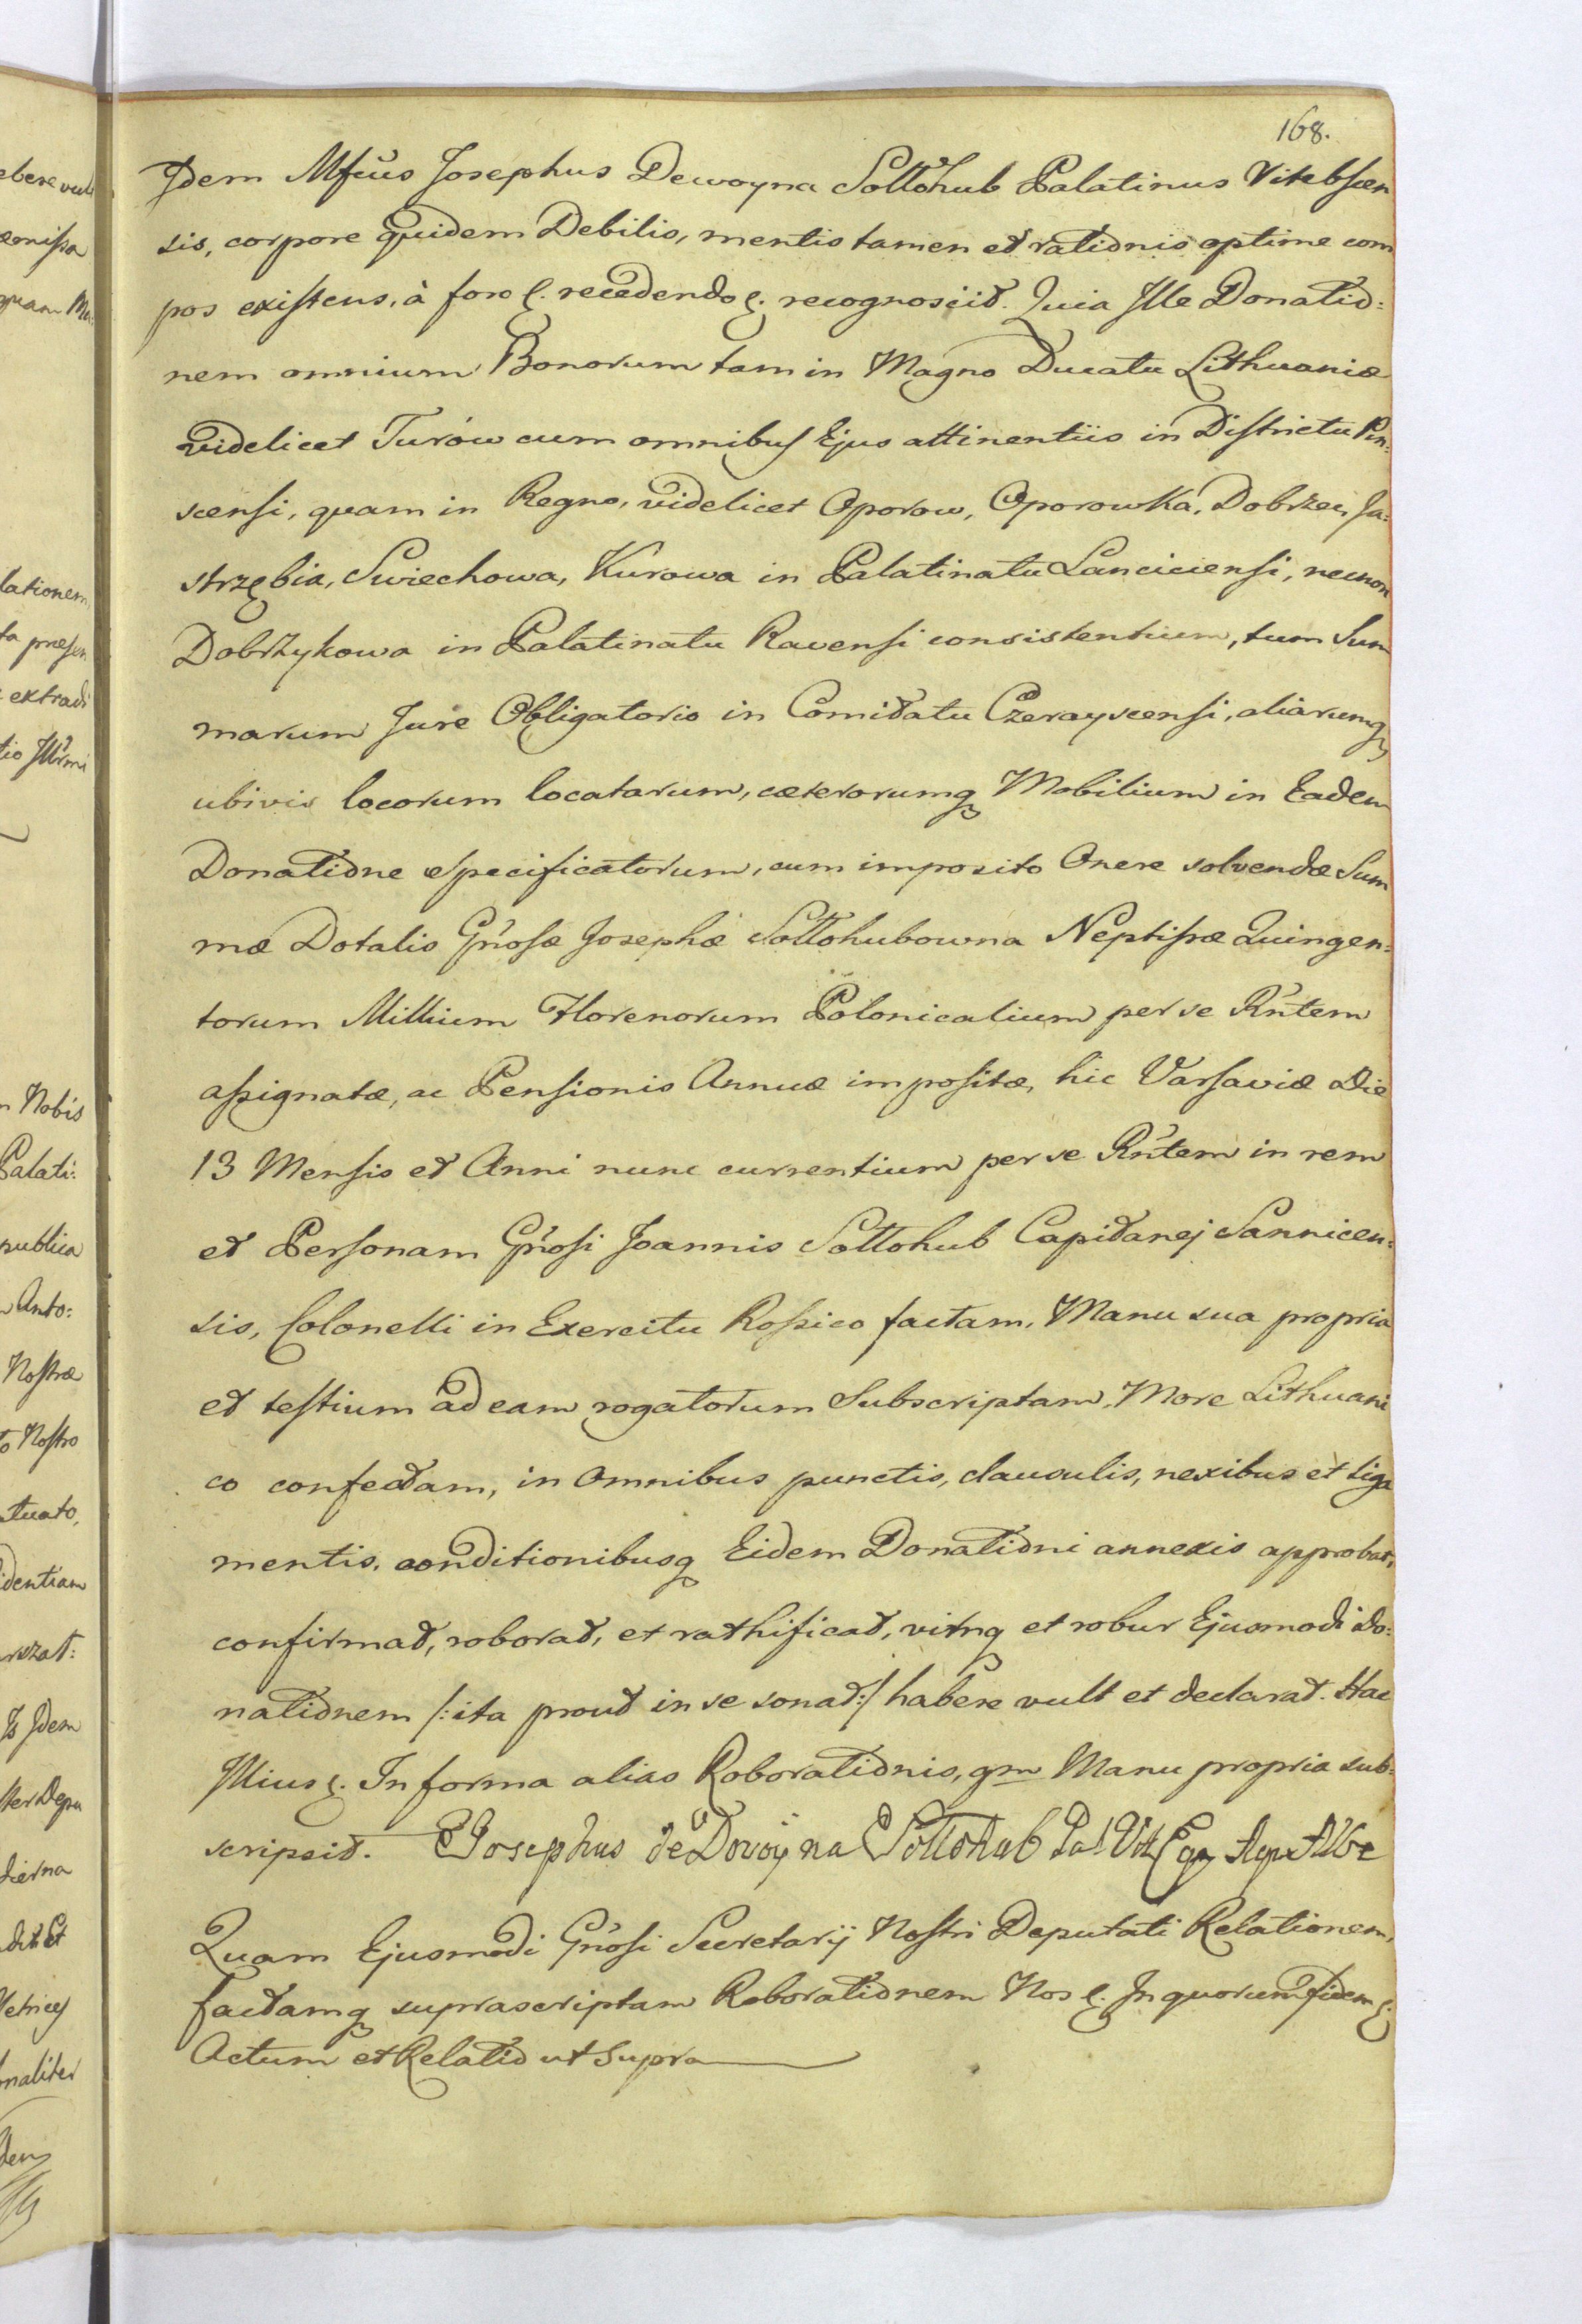 168.
Idem Mfcus Josephus Dewoyna Sołłohub Palatinus Vitebscen
sis, corpore quidem Debilis, mentis tamen et rationis optime com
pos existens, à foro &. recedendo &. recognoscit. Quia Ille Donatio=
nem omnium Bonorum tam in Magno Ducatu Lithuaniæ
videlicet Turów cum omnibus Ejus attinentiis in Districtu Pin=
scensi, quam in Regno, videlicet Oporow, Oporowka, Dobrzec, Ja=
strzębia, Swiechowa, Kurowa in Palatinatu Lanciciensi, necnon
Dobrzykowa in Palatinatu Ravensi consistentium, tum Sum
marum Jure Obligatorio in Comitatu Czerayscensi, aliarumq
ubivis locorum locatarum, cæterorumq Mobilium in Eadem
Donatione specificatorum, cum imposito Onere solvendæ Sum
mæ Dotalis Gñosæ Josephæ Sołłohubowna Neptissæ Quingen=
torum Millium Florenorum Polonicalium per se Rñtem
assignatæ, ac Pensionis Annuæ impositæ, hic Varsaviæ Die
13 Mensis et Anni nunc currentium per se Rñtem in rem
et Personam Gñosi Joannis Sołłohub Capitanej Sannicen=
sis, Colonelli in Exercitu Rossico factam, Manu sua propria
et testium ad eam rogatorum Subscriptam, More Lithuani
co confectam, in Omnibus punctis, clausulis, nexibus et liga
mentis, conditionibusq Eidem Donationi annexis approbat,
confirmat, roborat, et rathificat, vimq et robur Ejusmodi Do=
nationem /:ita prout in se sonat:/ habere vult et declarat. Hac
Illius &. In forma alias Roborationis, qm Manu propria sub=
scripsit. Josephus de Dowoyna Sołłohub Pal Vit
Quam Ejusmodi Gñosi Secretarij Nostri Deputati Relationem,
factamq suprascriptam Roborationem Nos &. In quorum fidem &.
Actum et Relatio ut Supra